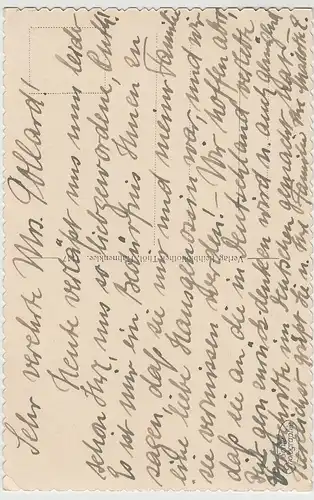 Sehr verehrte Mrs. Pollard!
Heute verläßt uns nun leider
schon Ihr, uns so liebgewordene,
Es ist mir ein Bedürfnis Ihnen zu
sagen, daß sie mir und meiner Familie
eine liebe Hausgenossin war, und wir
sie vermissen werden! – Wir hoffen aber
daß sie an die in Deutschland verlebte
Zeit gern zurück denken wird u. auch
Fortschritte im Deutschen gemacht hat. –
Vielleicht Sie Ihre Familie
Verlag